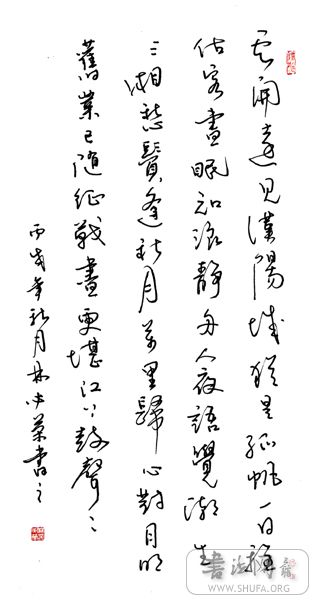 云開遠見漢陽城猶是孤帆一日程
估客晝眠知浪靜舟人夜語覺潮生
三湘愁鬢逢秋月萬里歸心對月明
舊業已隨征戰盡更堪江上鼓聲
丙戌年秋月書之
WWW.SHUFA.ORG